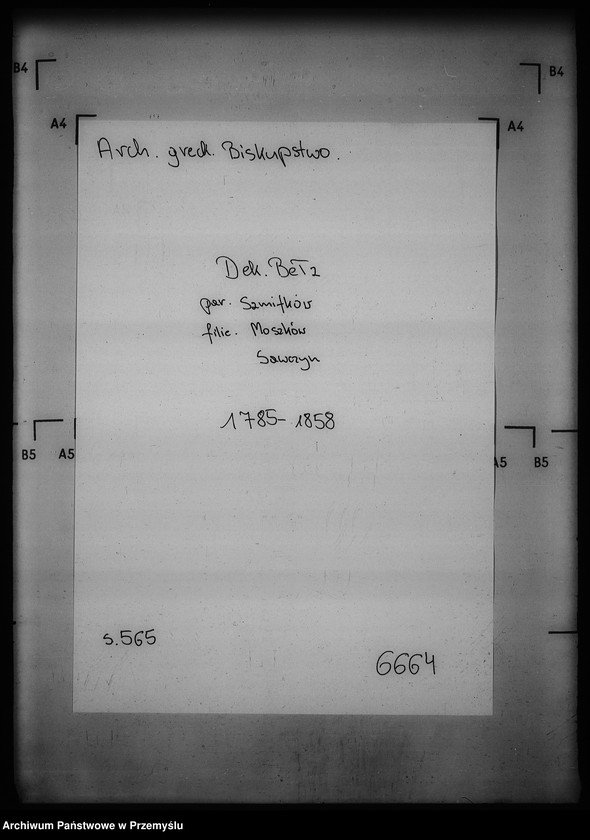 B4
B4
A4
A4
Arch. greck. Biskupstwo.
Dek. Bełz
par. Szmitków
filie. Moszków
Sawczyn
1785-1858
B5
A5
A5
B5
s.565
6664
Archiwum Państwowe w Przemyślu